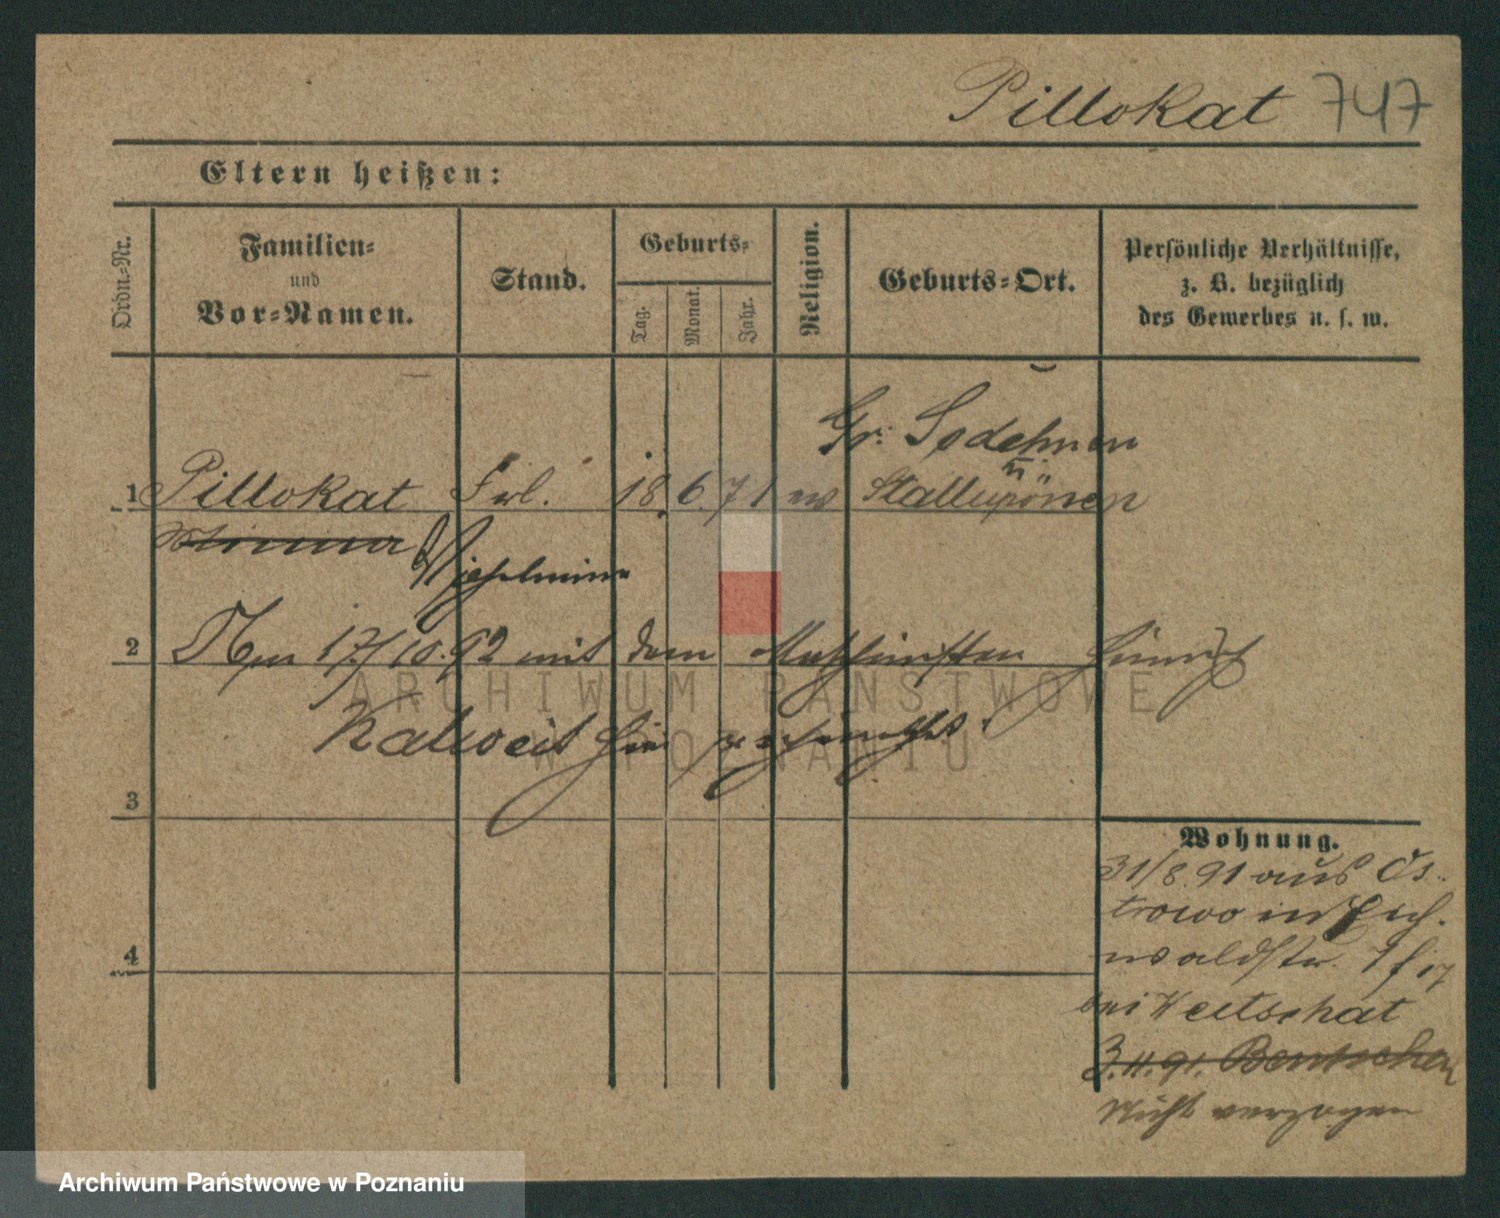 Pillokat 747
Eltern heißen:
Ordn.-Nr.
Familien-
und
Vor-Namen.
Stand.
Geburts-
Tag.
Monat.
Jahr.
Religion.
Geburts-Ort.
Persönliche Verhältnisse,
z. B. bezüglich
des Gewerbes u. s. w.
Gr. Sodehnen
1 Pillokat Frl. 18. 6. 71 ev Stallupönen
Minna Wilhelmine
2 Am 17/10.92 mit dem Maschinisten Heinrich
Kalweit hier
3
Wohnung.
31/8.91 aus Os-
trowo in Eich-
waldstr.
bei Weitschat
4
3.11.91. Bentschen
Nicht verzogen
ARCHIWUM PAŃSTWOWE
W POZNANIU
Archiwum Państwowe w Poznaniu